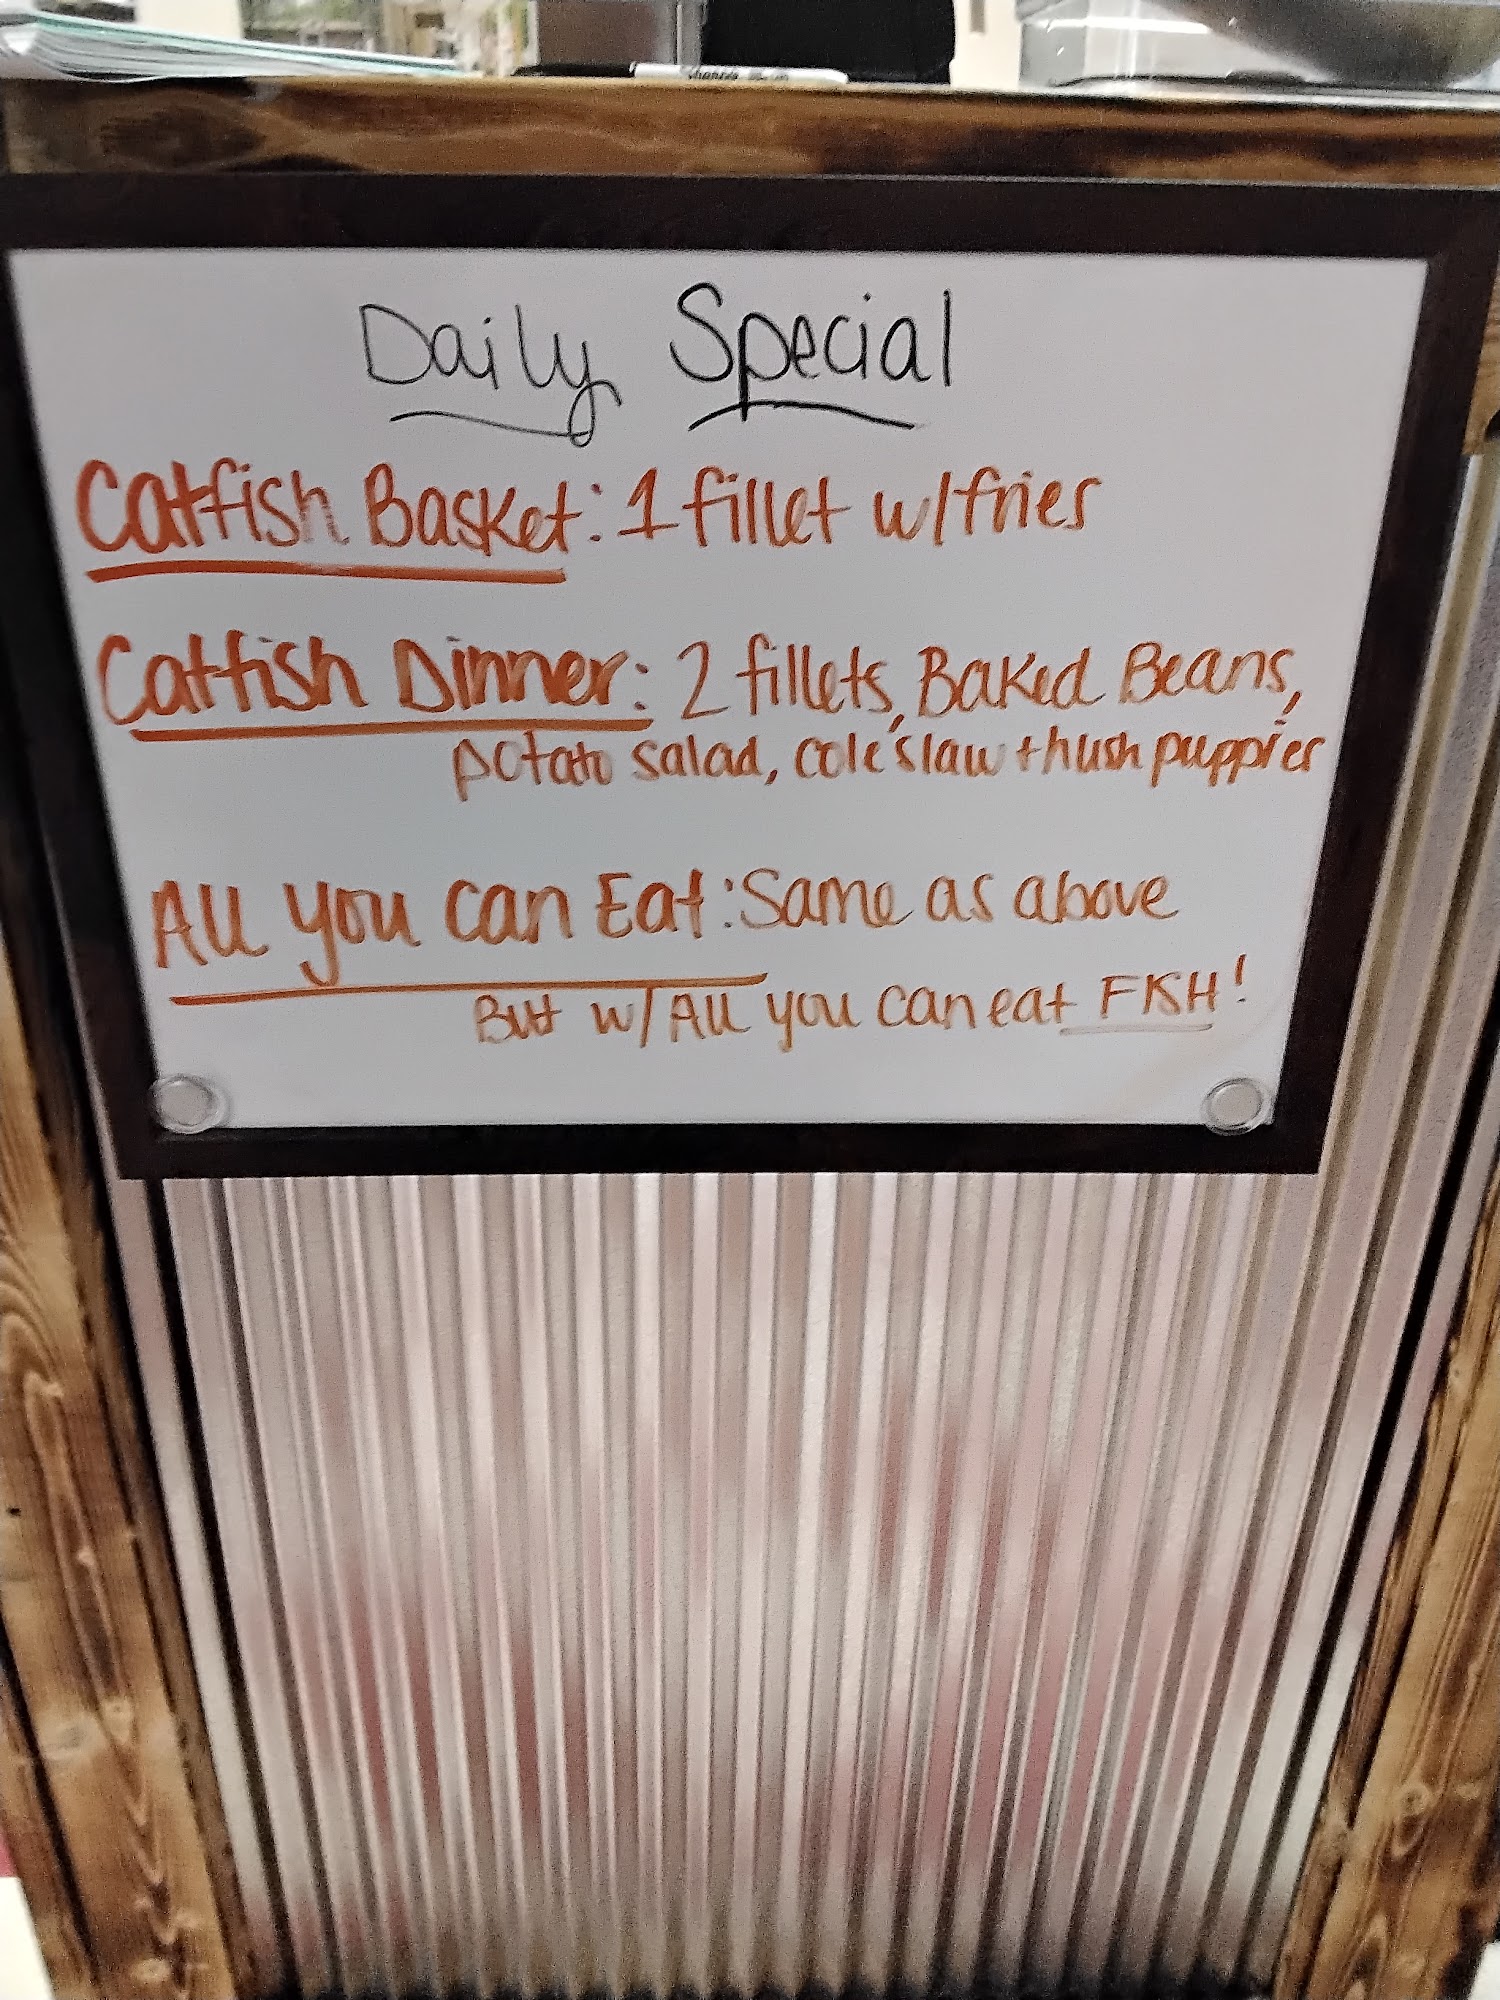 Sharpie
Daily Special
Catfish Basket: 1 fillet w/fries
Catfish Dinner: 2 fillets, Baked Beans,
potato salad, coleslaw + hush puppies
All you can Eat: Same as above
But w/ All you can eat FISH!